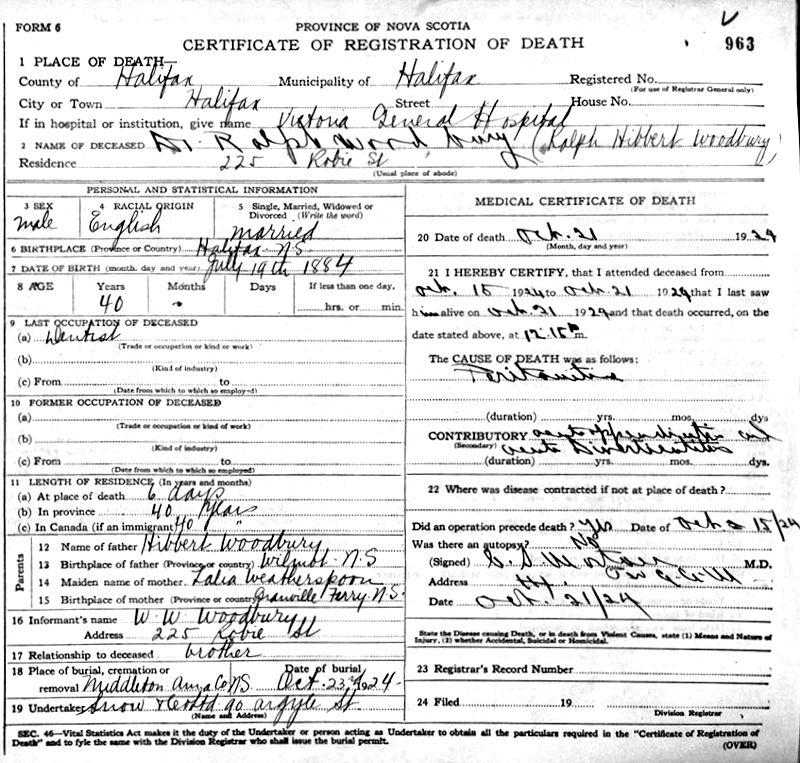 FORM 6
PROVINCE OF NOVA SCOTIA
CERTIFICATE OF REGISTRATION OF DEATH
963
1 PLACE OF DEATH—
County of Halifax Municipality of Halifax Registered No.
(For use of Registrar General only)
City or Town Halifax Street House No.
If in hospital or institution, give name Victoria General Hospital
2 NAME OF DECEASED Dr. Ralph Woodbury (Ralph Hibbert Woodbury)
Residence 225 Robie St
(Usual place of abode)
PERSONAL AND STATISTICAL INFORMATION
3 SEX male
4 RACIAL ORIGIN English
5 Single, Married, Widowed or Divorced (Write the word) married
6 BIRTHPLACE (Province or Country) Halifax N.S.
7 DATE OF BIRTH (month, day and year) July 19th 1884
8 AGE Years Months Days If less than one day,
40 hrs. or min.
9 LAST OCCUPATION OF DECEASED
(a) Dentist
(Trade or occupation or kind of work)
(b)
(Kind of industry)
(c) From to
(Date from which to which so employed)
10 FORMER OCCUPATION OF DECEASED
(a)
(Trade or occupation or kind of work)
(b)
(Kind of industry)
(c) From to
(Date from which to which so employed)
11 LENGTH OF RESIDENCE (In years and months)
(a) At place of death 6 days
(b) In province 40 years
(c) In Canada (if an immigrant) 40 "
Parents
12 Name of father Hibbert Woodbury
13 Birthplace of father (Province or country) Wilmot N.S
14 Maiden name of mother Lalia Weatherspoon
15 Birthplace of mother (Province or country) Granville Ferry N.S.
16 Informant's name W. W. Woodbury
Address 225 Robie St
17 Relationship to deceased brother
18 Place of burial, cremation or removal Middleton Anna Co NS Date of burial Oct. 23rd 1924
19 Undertaker Snow & Co Ltd 90 Argyle St.
(Name and Address)
MEDICAL CERTIFICATE OF DEATH
20 Date of death Oct. 21 1924
(Month, day and year)
21 I HEREBY CERTIFY, that I attended deceased from
Oct. 15 1924 to Oct. 21 1924 that I last saw
him alive on Oct. 21 1924 and that death occurred, on the
date stated above, at 12.15 P m.
The CAUSE OF DEATH was as follows:
Peritonitis
(duration) yrs. mos. dys
CONTRIBUTORY acute appendicitis and
(Secondary) acute Diverticulitis
(duration) yrs. mos. dys.
22 Where was disease contracted if not at place of death?
Did an operation precede death? yes Date of Oct 15/24
Was there an autopsy? No
(Signed) M.D.
Address
Date Oct. 21/24
State the Disease causing Death, or in death from Violent Causes, state (1) Means and Nature of
Injury, (2) whether Accidental, Suicidal or Homicidal.
23 Registrar's Record Number
24 Filed 19
Division Registrar
SEC. 46—Vital Statistics Act makes it the duty of the Undertaker or person acting as Undertaker to obtain all the particulars required in the "Certificate of Registration of
Death" and to fyle the same with the Division Registrar who shall issue the burial permit.
(OVER)